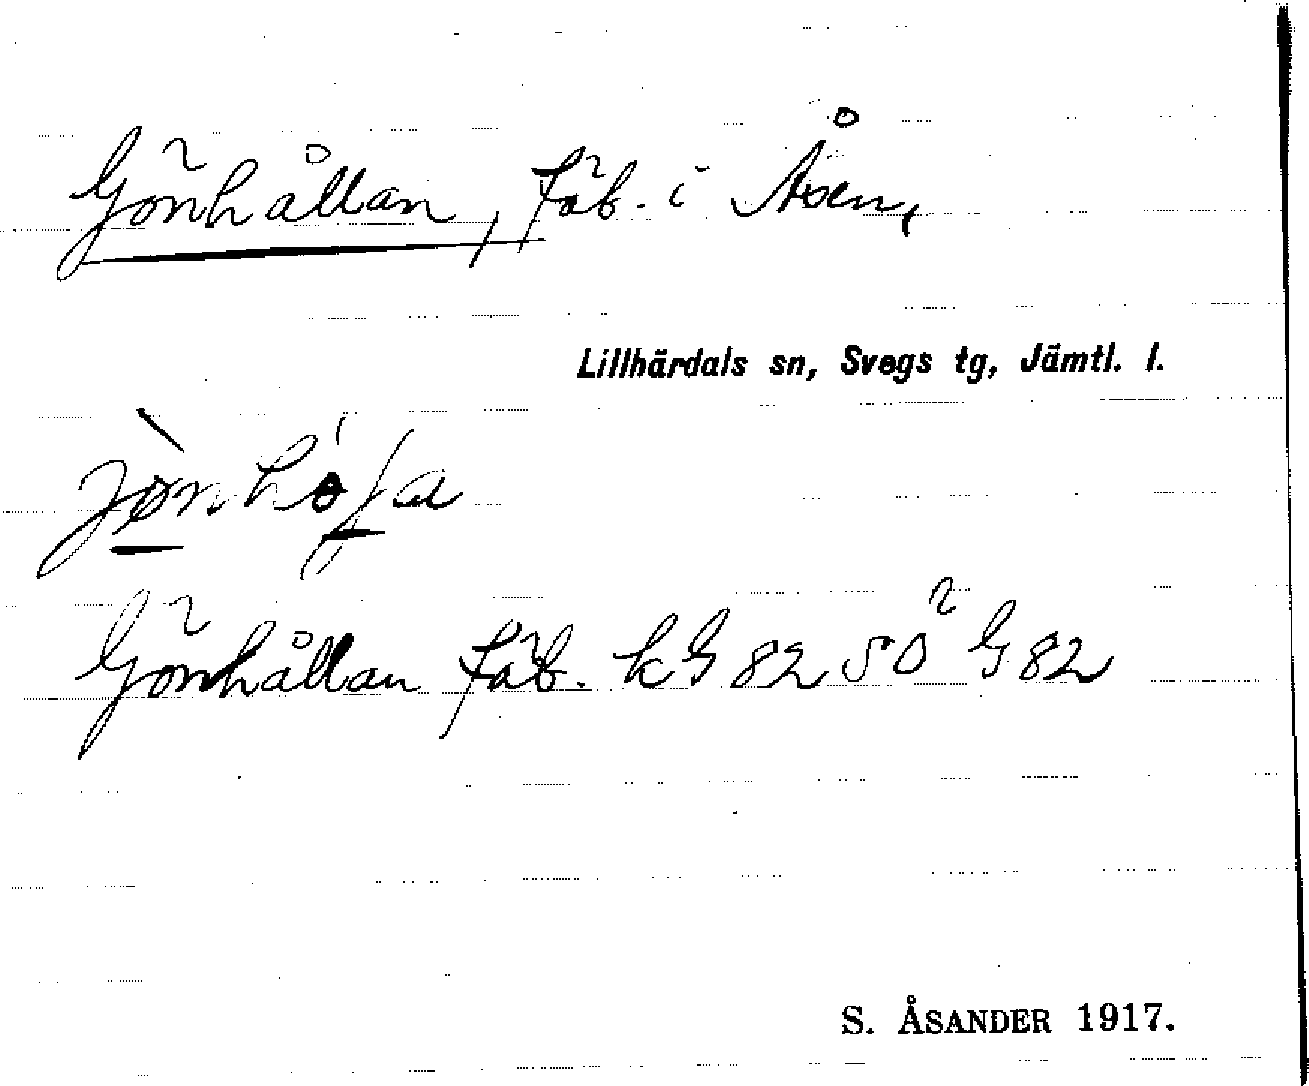 Gönhållan, fäb. i Åsen,
Lillhärdals sn, Svegs tg, Jämtl. l.
Gönhållan fäb. kG 82 SÖ G 82
S. ÅSANDER 1917.